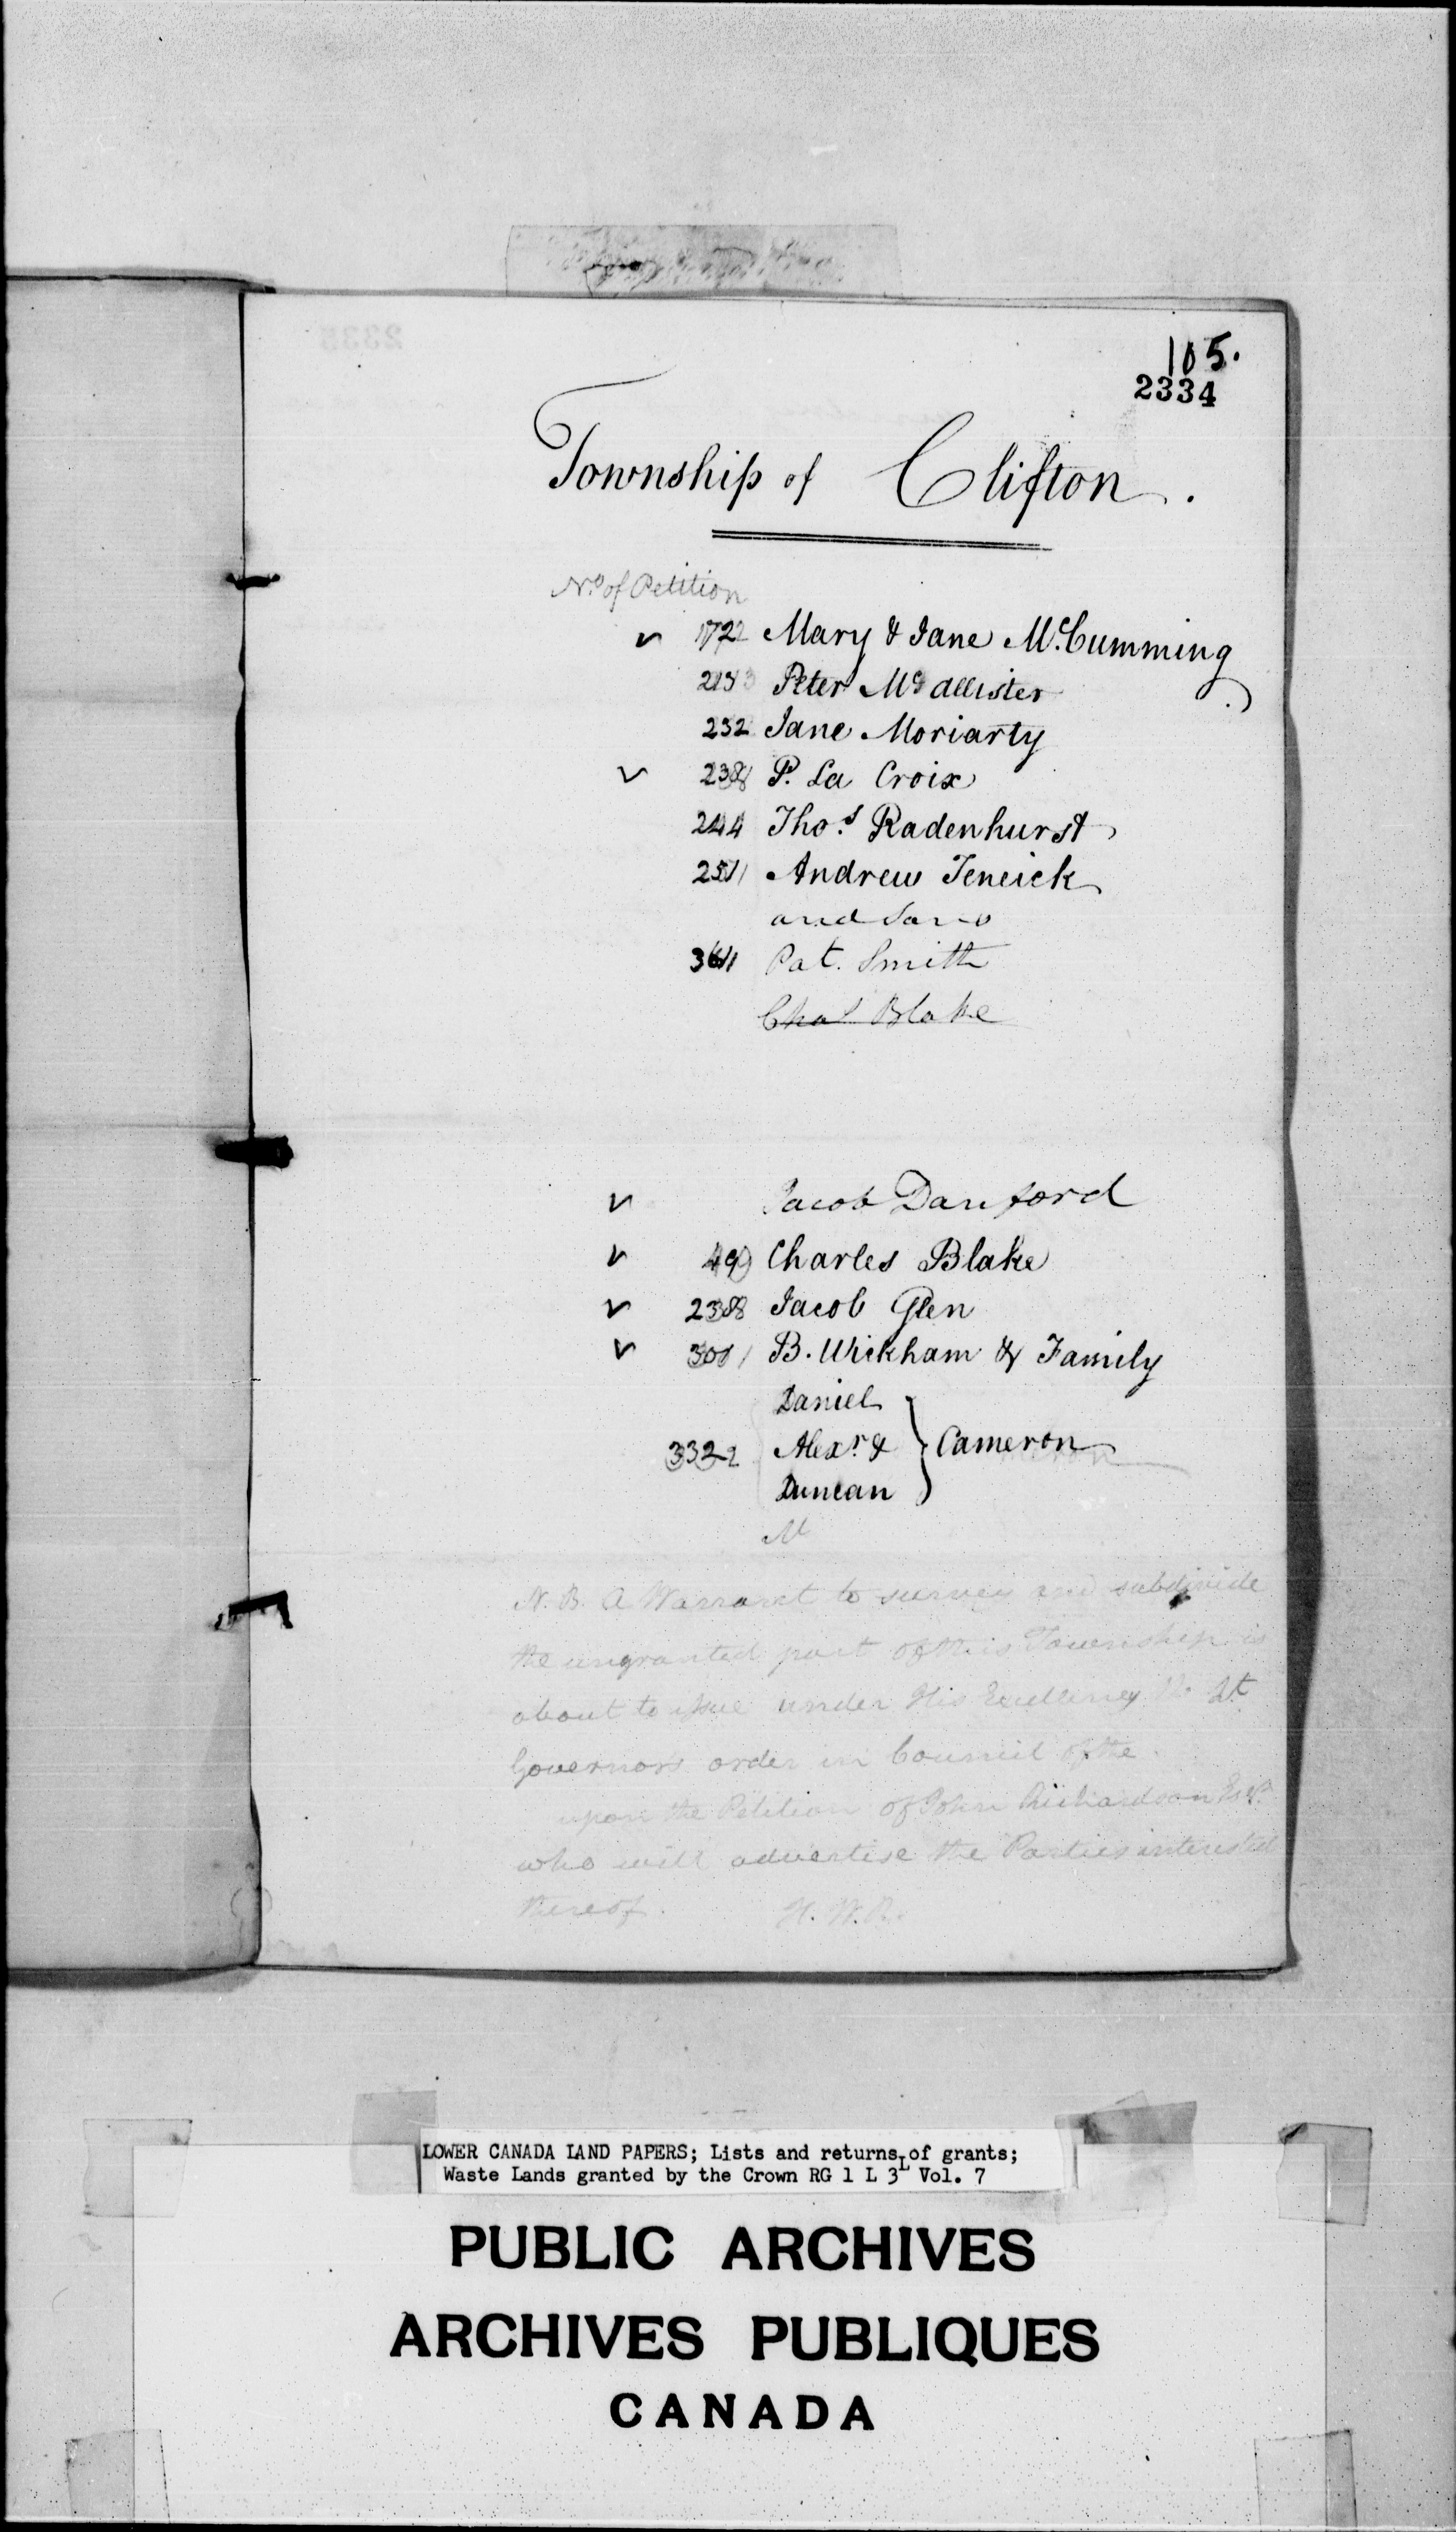 105.
2334
Township of Clifton.
No. of Petition
✓ 172 Mary & Jane McCumming
213 Peter McAllister
232 Jane Moriarty
✓ 238 P. La Croix
244 Thos. Radenhurst
251 Andrew Teneick
and
361 Pat. Smith
Chas Blake
✓ Jacob Danford
✓ 49 Charles Blake
✓ 238 Jacob Glen
✓ 301 B. Wickham & Family
Daniel
332 Alexr. & } Cameron
Duncan
M
N.B. A Warrant to survey and subdivide
the ungranted part of this Township is
about to issue under His Excellency the Lt.
Governors order in Council of the
upon the Petition of John Richardson Esqr.
who will advertise the Parties interested
thereof. H.W.R.
LOWER CANADA LAND PAPERS; Lists and returns of grants;
Waste Lands granted by the Crown RG 1 L 3L Vol. 7
PUBLIC ARCHIVES
ARCHIVES PUBLIQUES
CANADA